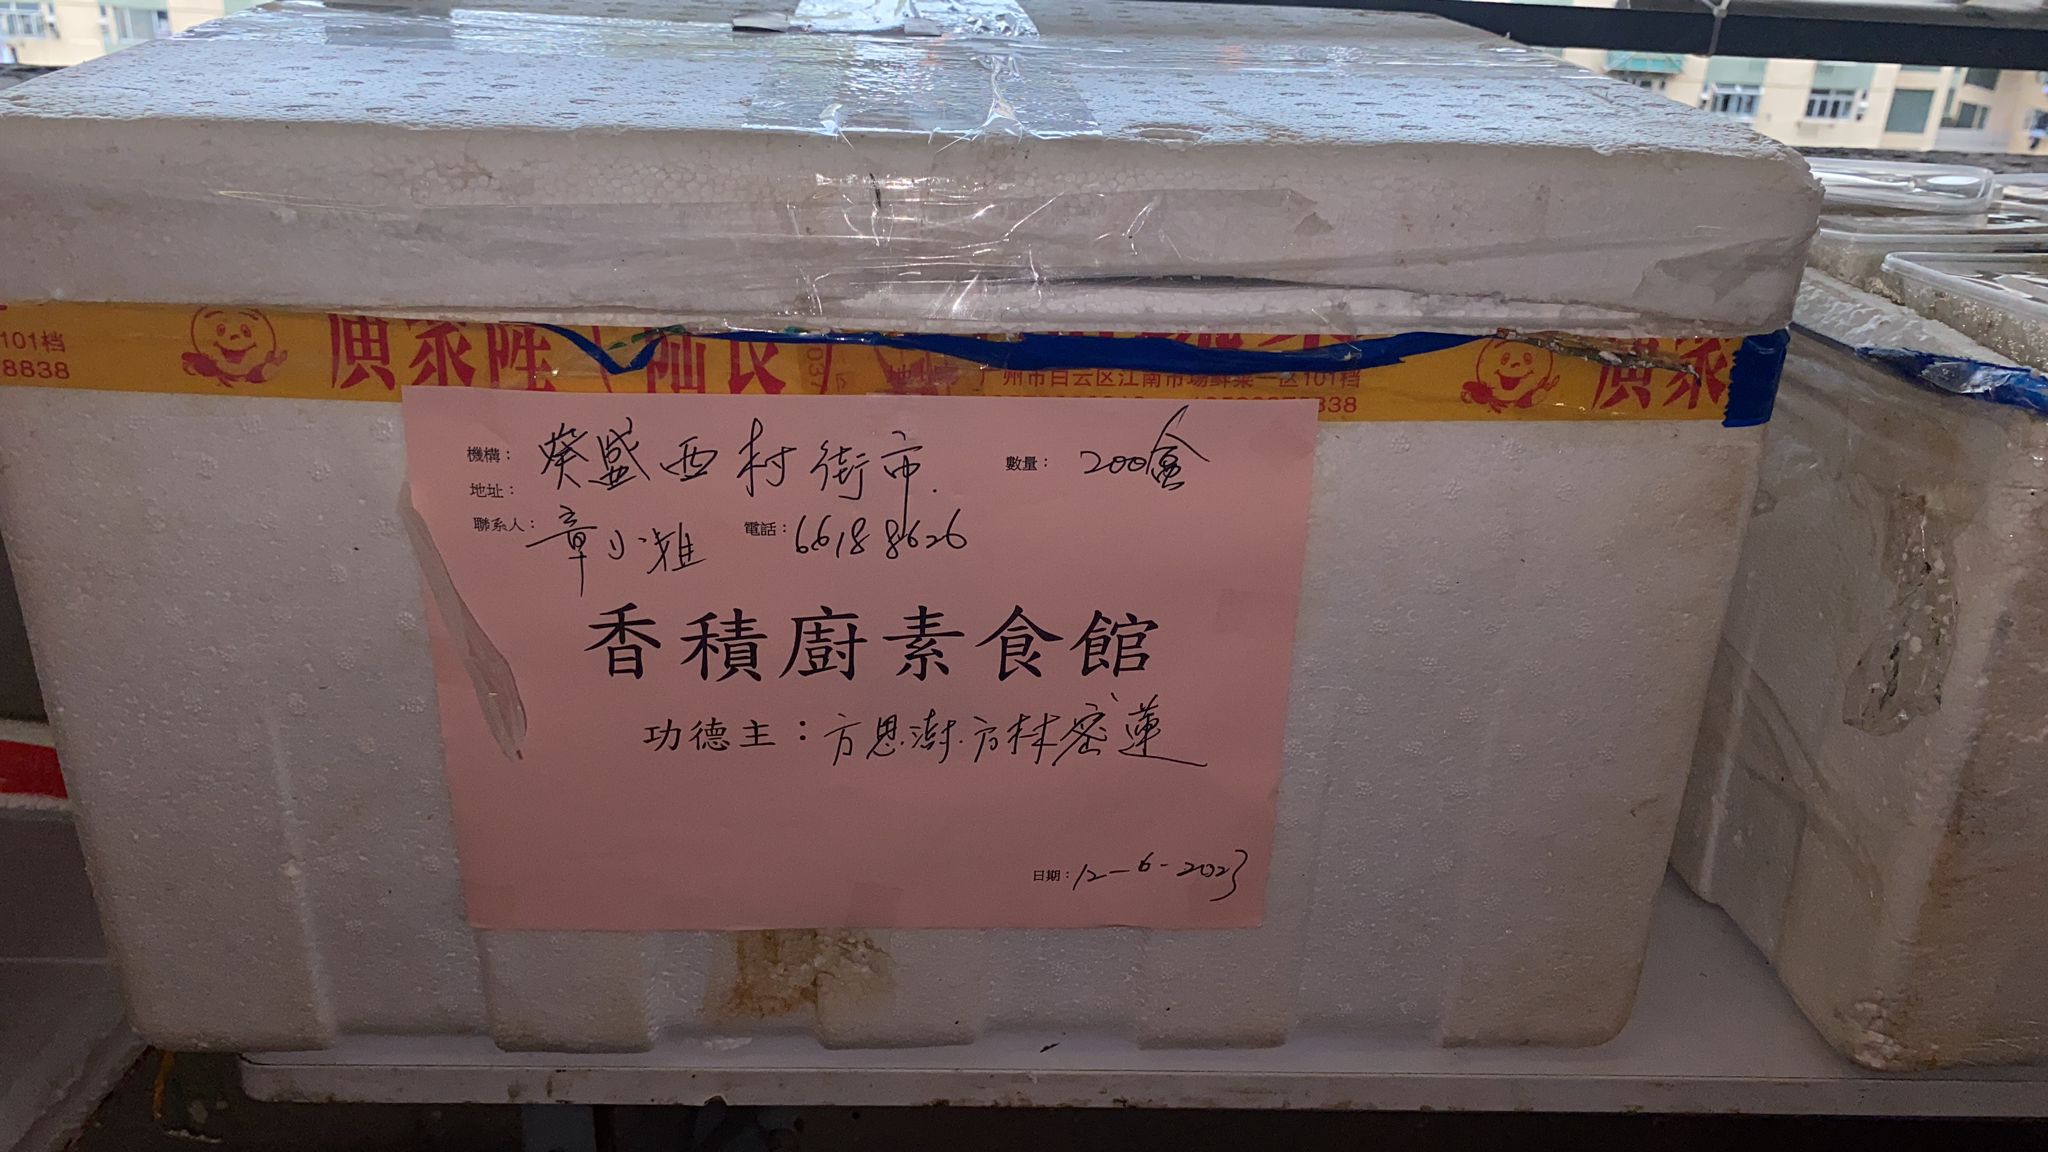 101档
8838
广州市白云区江南市場鲜菜一区101档
機構： 葵盛西村街市. 數量： 200盒
地址：
聯系人： 章小雅 電話： 66188626
香積廚素食館
功德主：方恩澍.方林密蓮
日期： 12-6-2023